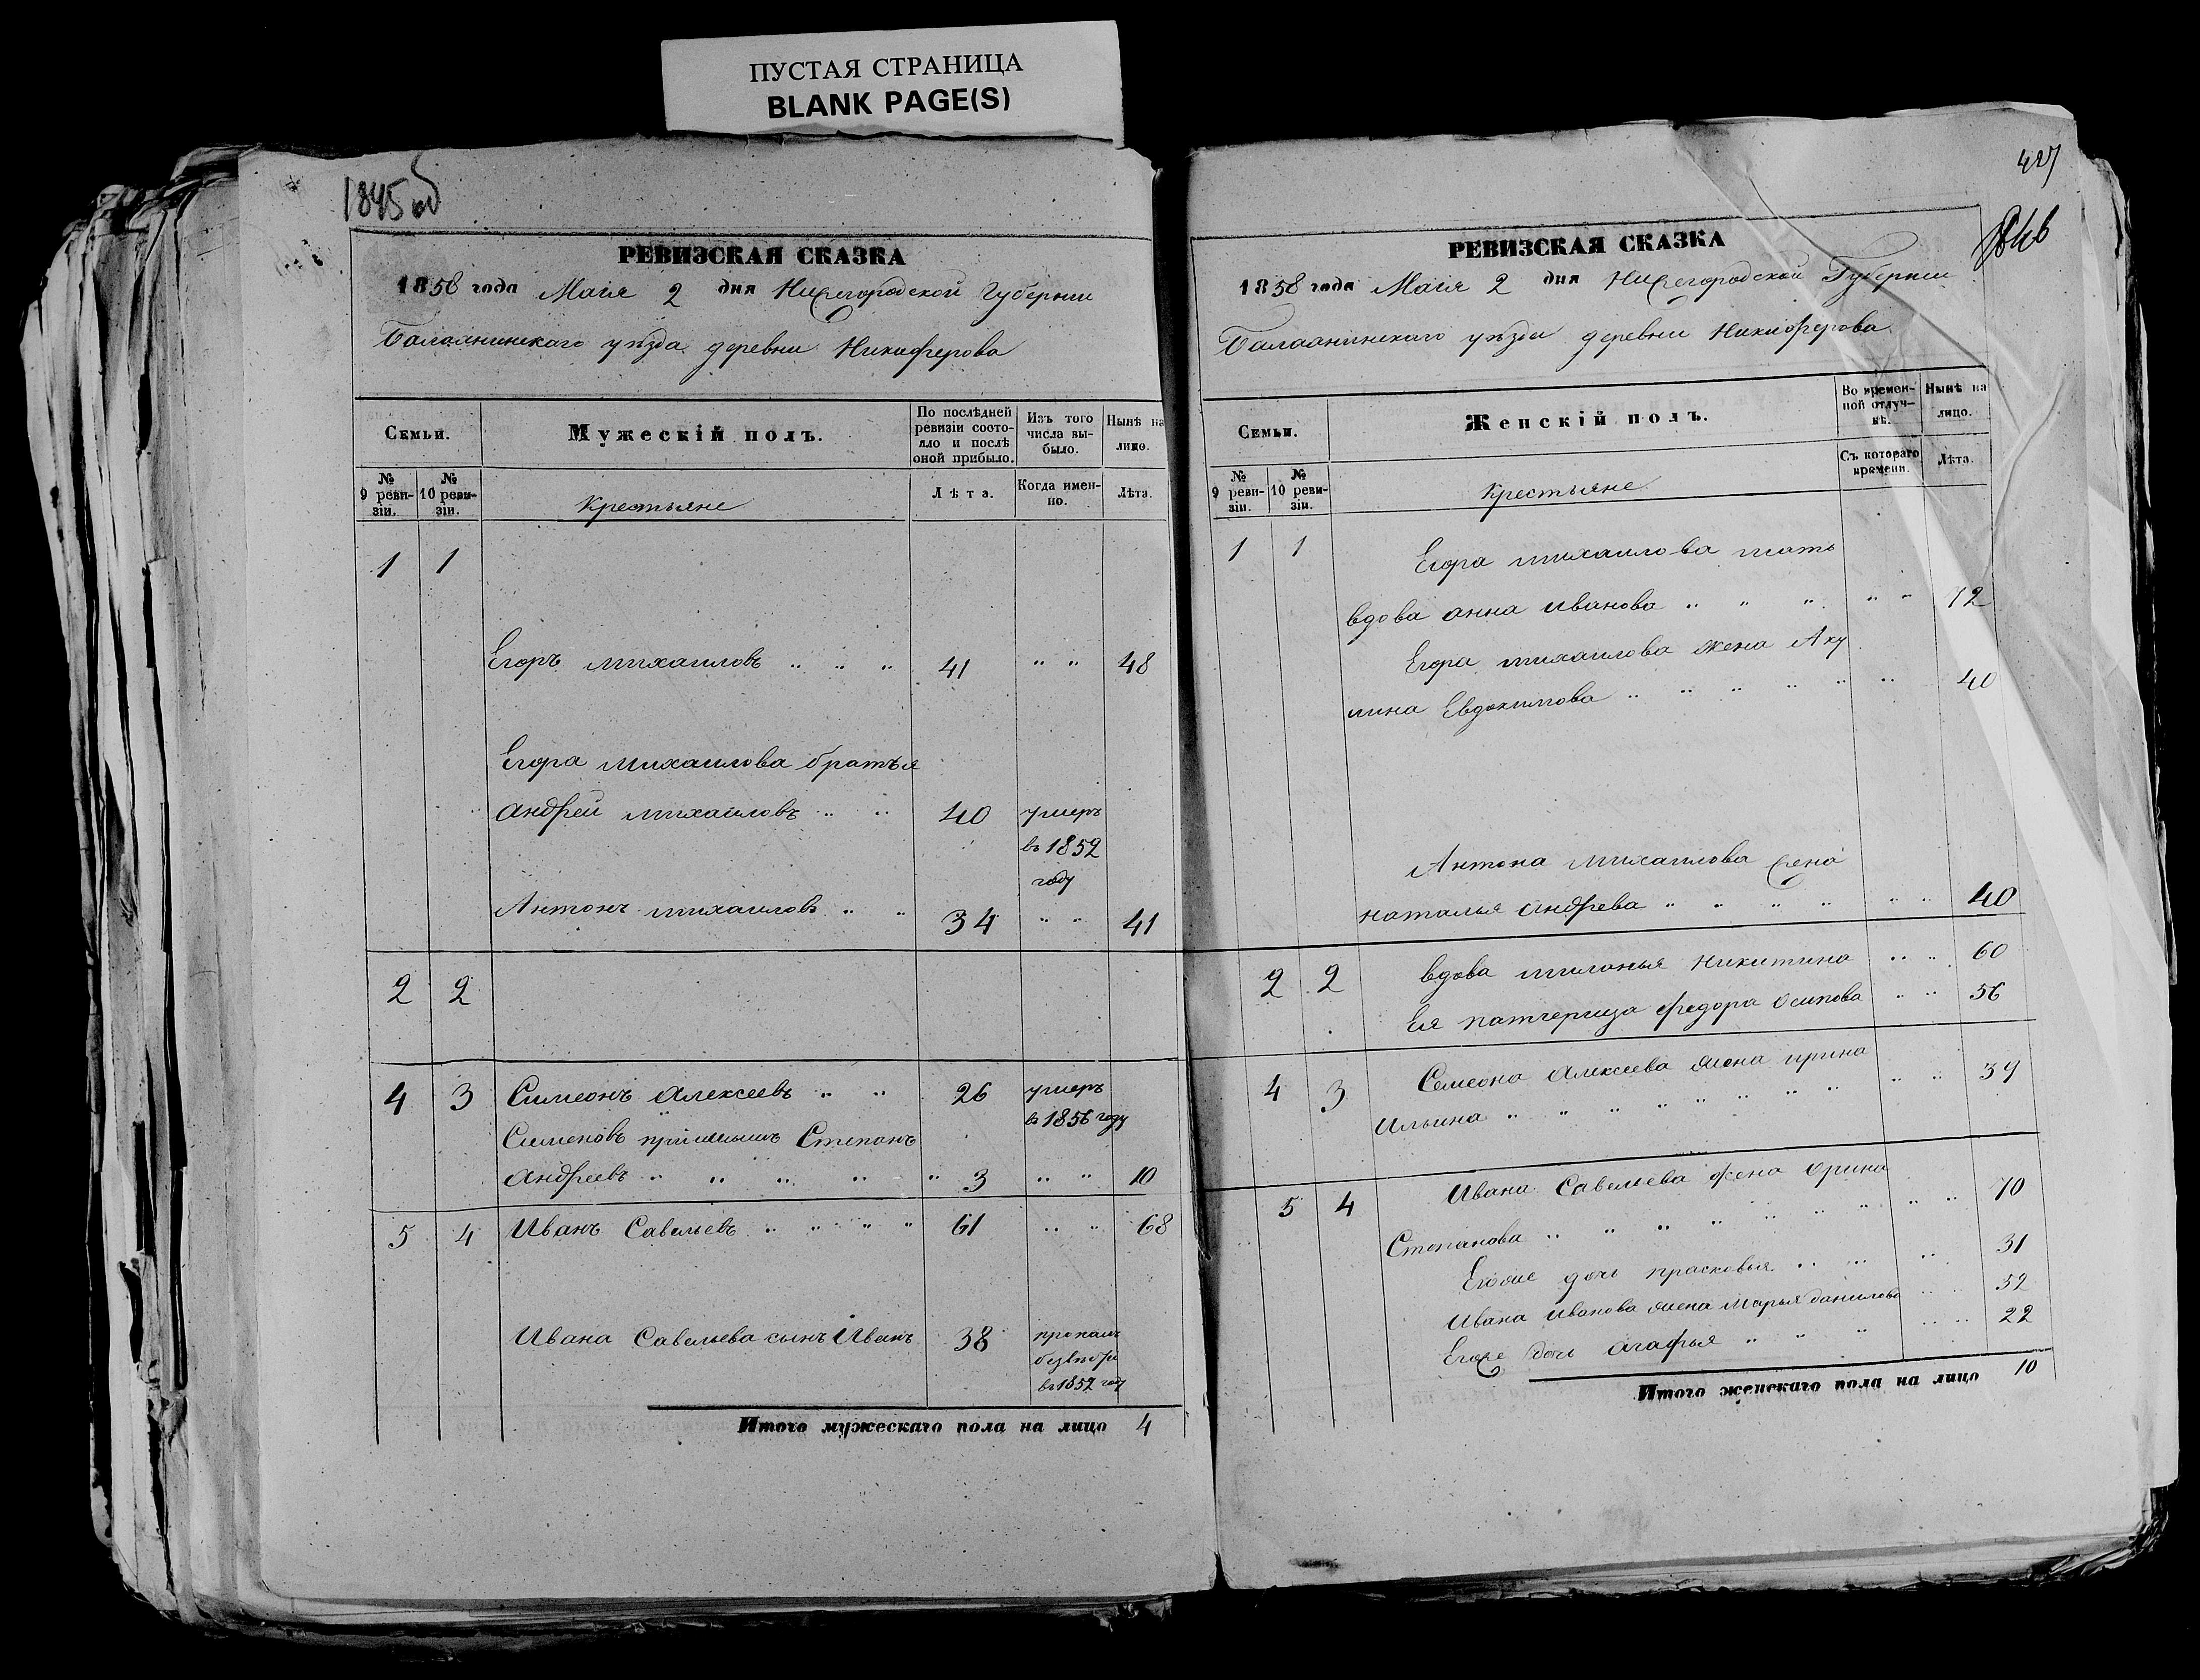 ПУСТАЯ СТРАНИЦА
BLANK PAGE(S)
1845 об
РЕВИЗСКАЯ СКАЗКА
1858 года Маія 2 дня Нижегородской Губерніи
Балахнинскаго уѣзда деревни Никиферова
Семьи.
Мужескій полъ.
По послѣдней ревизіи состояло и послѣ оной прибыло.
Изъ того числа выбыло.
Нынѣ на лицо.
№ 9 ревизіи.
№ 10 ревизіи.
Крестьяне
Лѣта.
Когда именно.
Лѣта.
1 1
Егоръ михаиловъ 41 48
Егора михаилова братья
андрей михаиловъ 40 умеръ
въ 1852
году
Антонъ михаиловъ 34 41
2 2
4 3 Симеонъ алексеевъ 26 умеръ
въ 1856 году
Сименовъ приемышъ Степанъ
андреевъ 3 10
5 4 Иванъ Савельевъ 61 68
Ивана Савельева сынъ Иванъ 38 пропалъ
въ 1852 году
Итого мужескаго пола на лицо 4
427
1846
РЕВИЗСКАЯ СКАЗКА
1858 года Маія 2 дня Нижегородской Губерніи
Балахнинскаго уѣзда деревни Никиферова
Семьи.
Женскій полъ.
Во временной отлучкѣ.
Нынѣ на лицо.
№ 9 ревизіи.
№ 10 ревизіи.
Крестьяне
Съ котораго времени.
Лѣта.
1 1 Егора михаилова мать
вдова анна иванова 72
Егора михаилова жена Аку
лина Евдокимова 40
Антона михаилова жена
наталья андрева 40
2 2 вдова миланья никитина 60
Ея патчерица федора осипова 56
4 3 Семеона алексеева жена ирина
Ильина 39
5 4 Ивана Савельева жена орина
Степанова 70
дочь прасковья 31
Ивана иванова жена марья данилова 32
Егоже дочь агафья 22
Итого женскаго пола на лицо 10